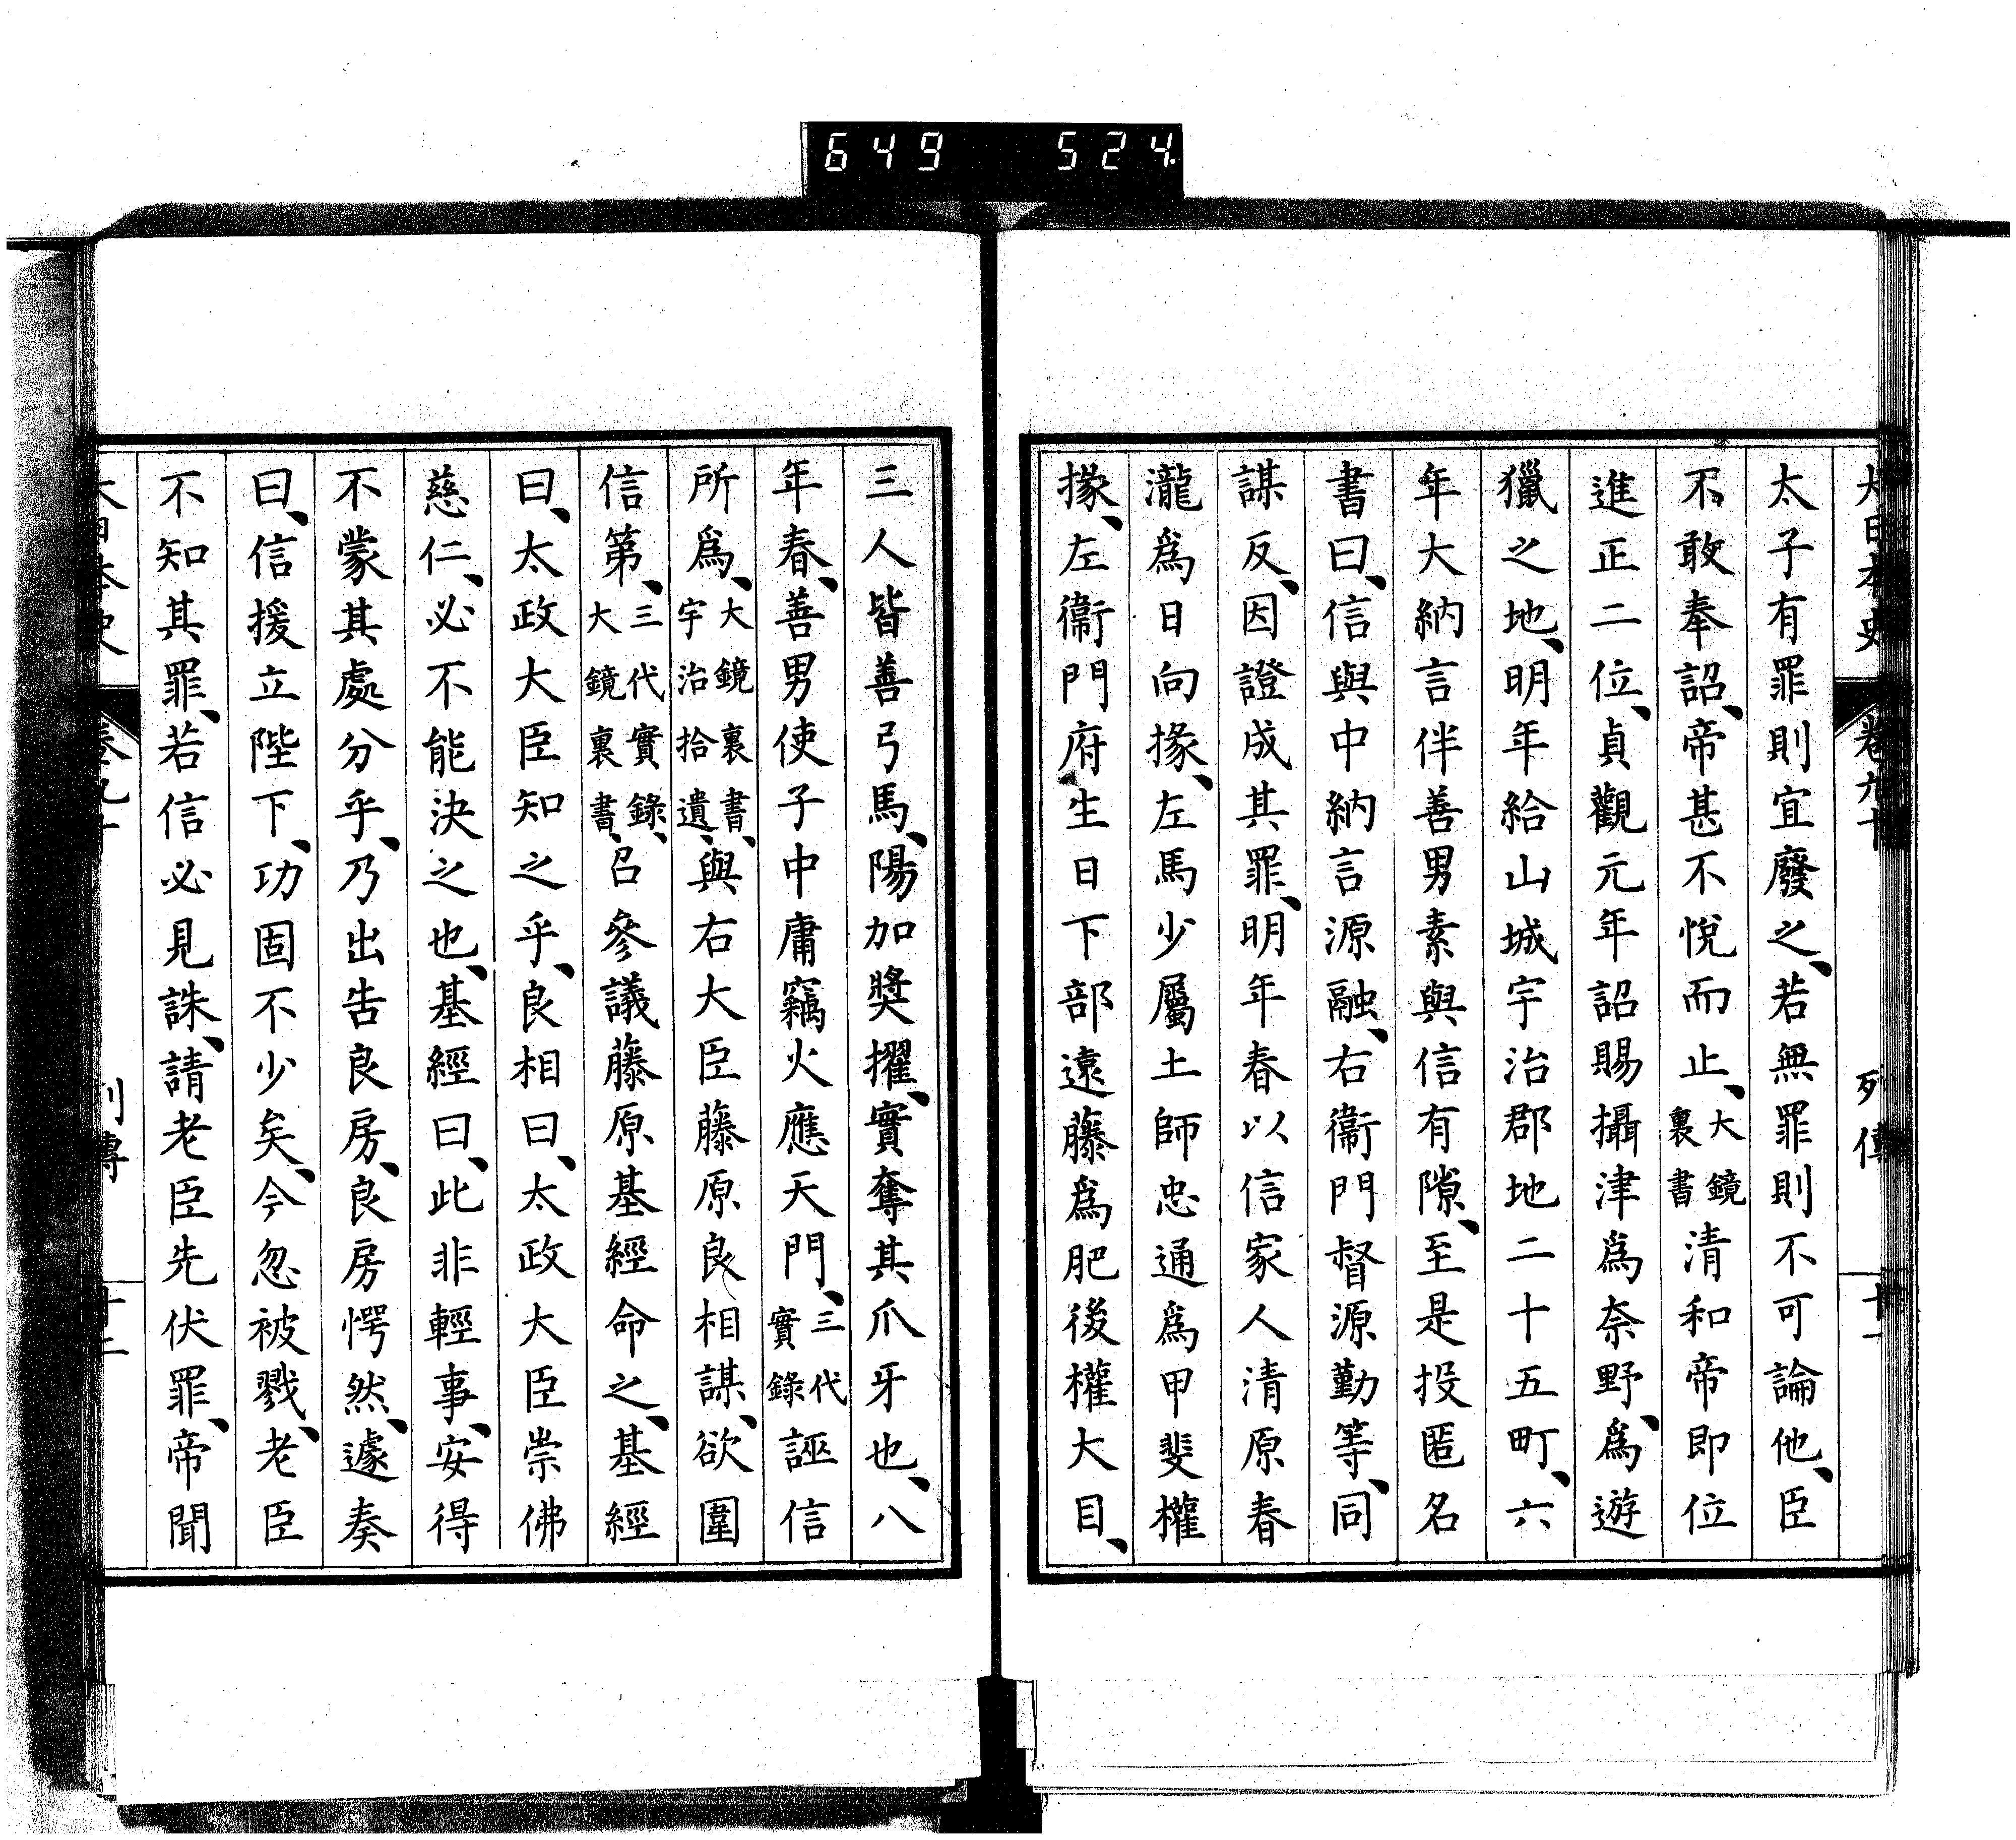 649 524
大日本史 卷九十 列傳
太子有罪則宜廢之、若無罪則不可論他、臣
不敢奉詔、帝甚不悅而止、大鏡裏書清和帝即位
進正二位、貞觀元年詔賜攝津爲奈野、爲遊
獵之地、明年給山城宇治郡地二十五町、六
年大納言伴善男素與信有隙、至是投匿名
書曰、信與中納言源融、右衞門督源勤等、同
謀反、因證成其罪、明年春以信家人清原春
瀧爲日向掾、左馬少屬土師忠通爲甲斐權
掾、左衞門府生日下部遠藤爲肥後權大目、
三人皆善弓馬、陽加奬擢、實奪其爪牙也、八
年春、善男使子中庸竊火應天門、三代實錄誣信
所爲、大鏡裏書、宇治拾遺、與右大臣藤原良相謀、欲圍
信第、三代實錄、大鏡裏書、召參議藤原基經命之、基經
曰、太政大臣知之乎、良相曰、太政大臣崇佛
慈仁、必不能決之也、基經曰、此非輕事、安得
不蒙其處分乎、乃出告良房、良房愕然、遽奏
曰、信援立陛下、功固不少矣、今忽被戮、老臣
不知其罪、若信必見誅、請老臣先伏罪、帝聞
大日本史 卷九十 列傳